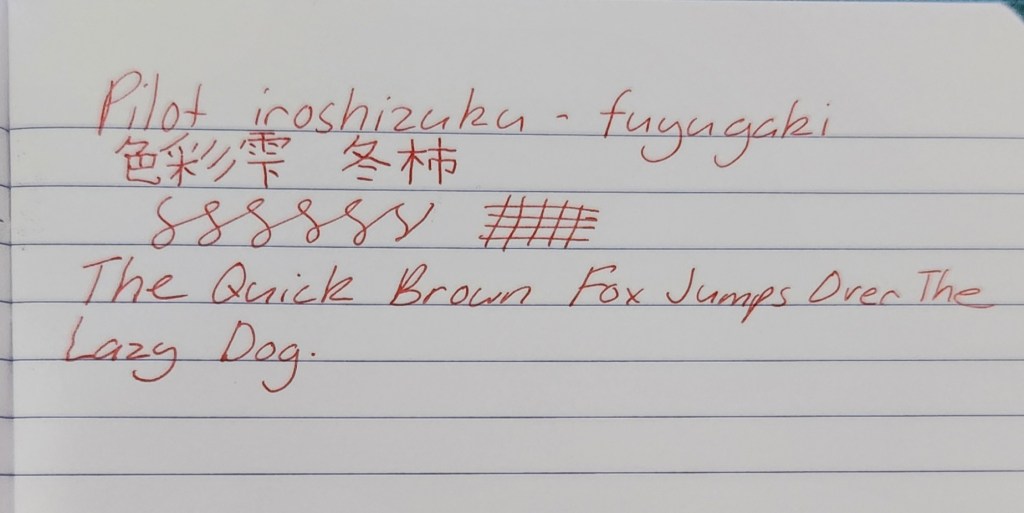 Pilot iroshizuku - fuyugaki
色彩雫 冬柿
The Quick Brown Fox Jumps Over The
Lazy Dog.